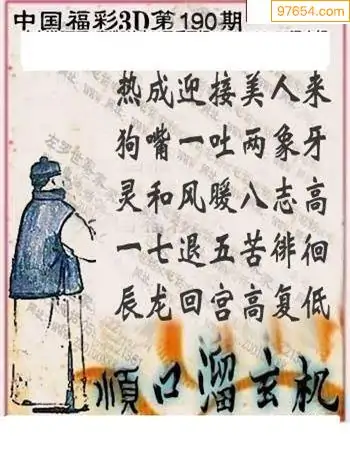 97654.com
中国福彩3D第190期
热成迎接美人来
狗嘴一吐两象牙
灵和风暖八志高
一七退五苦徘徊
辰龙回宫高复低
顺口溜玄机